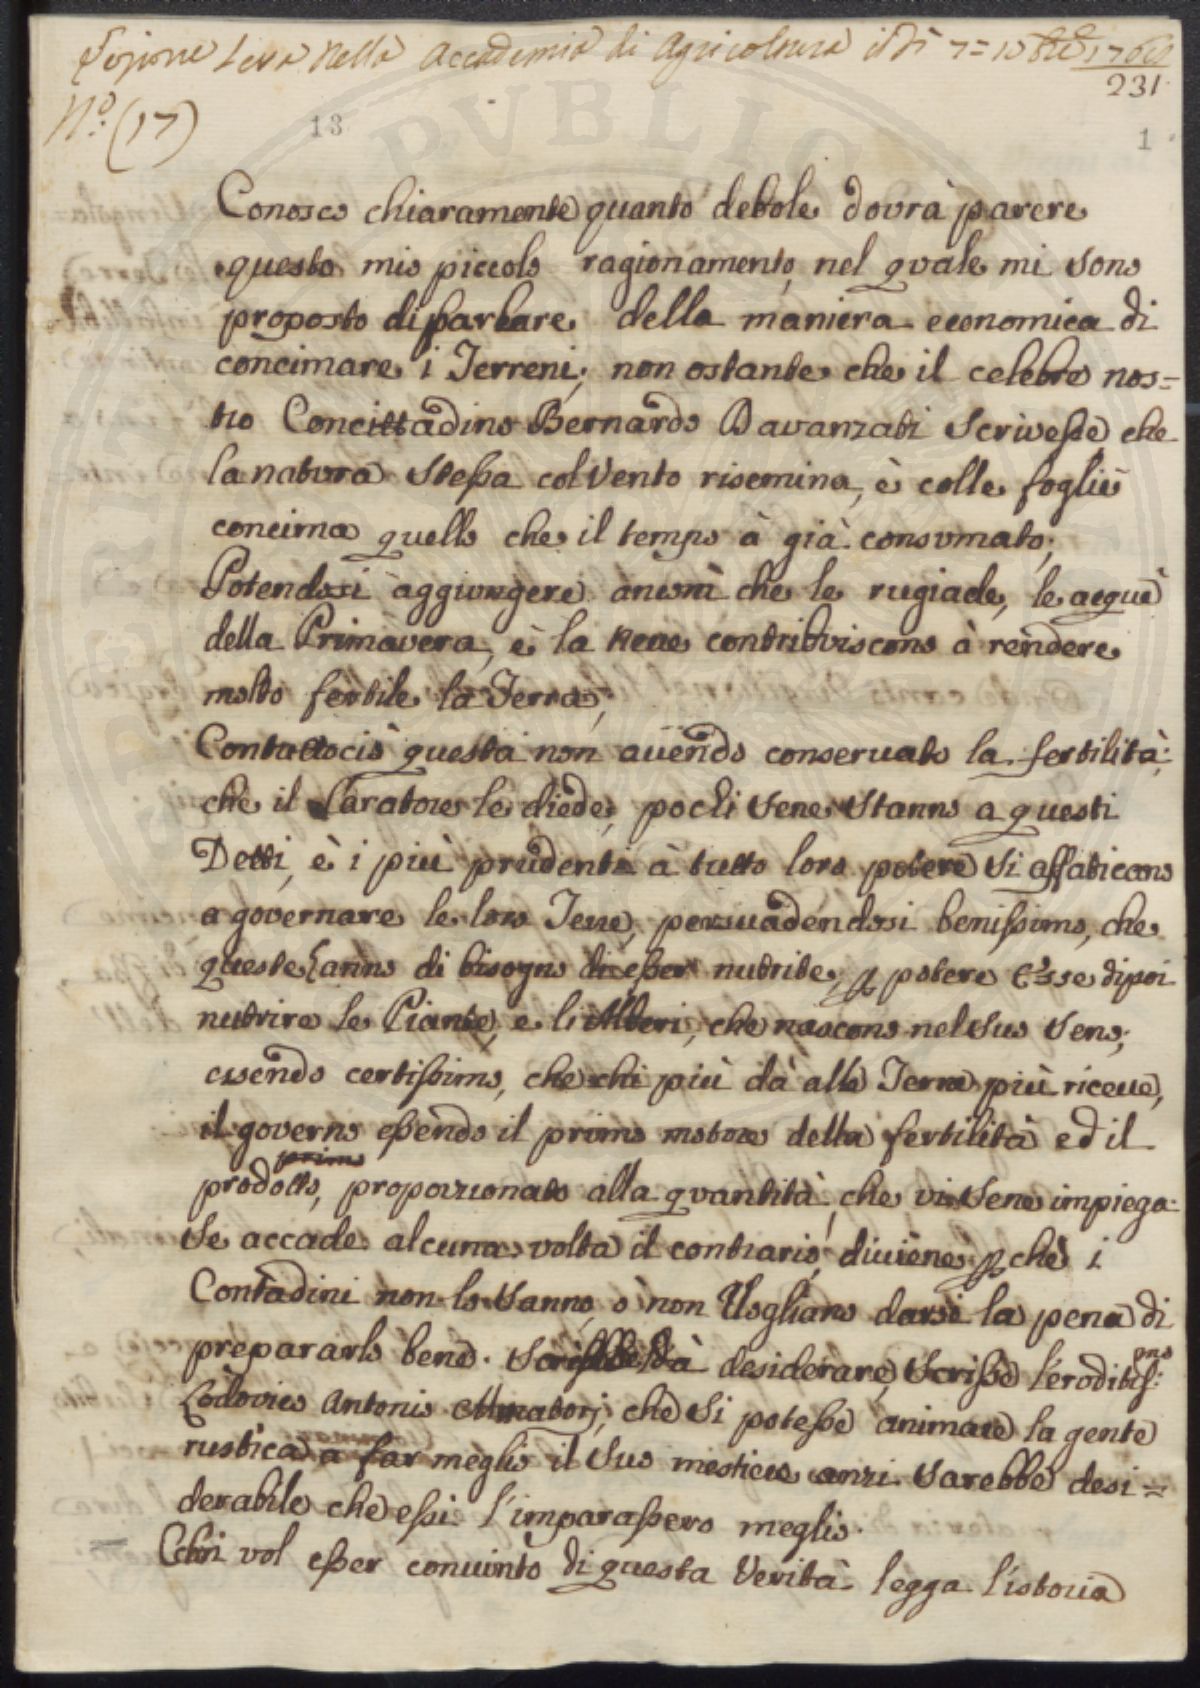 Lezione Letta Nella Accademia di Agricoltura il dì 7 = 10bre 1768
231
N.° (17)
13
1
Conosco chiaramente quanto debole dovrà parere
questo mio piccolo ragionamento, nel quale mi sono
proposto di parlare della maniera economica di
concimare i Terreni; non ostante che il celebre nos=
tro Concittadino Bernardo Davanzati Scrivesse che
la natura Stessa col Vento risemina, è colle foglie
concima quello che il tempo à già consumato;
Potendosi aggiungere ancora che le rugiade, le acque
della Primavera, è la Neve contribuiscono à rendere
molto fertile la Terra;
Contuttociò questa non avendo conservato la fertilità
che il Creatore le diede, pochi Sene Stanno a questi
Detti, è i più prudenti à tutto loro potere Si affaticano
a governare le loro Terre, persuadendosi benissimo, che
queste hanno di bisogno di esser nutrite, p potere Esse dipoi
nutrire le Piante, e li Alberi, che nascono nel Suo Seno;
essendo certissimo, che chi più dà alla Terra più riceve,
il governo essendo il primo motore della fertilità ed il
primo
prodotto, proporzionato alla quantità, che vi Sene impiega.
Se accade alcuna volta il contrario, diviene p chè i
Contadini non lo Sanno, ò non Vogliano darsi la pena di
prepararlo bene. Sarebbe da desiderare, Scrisse l'eroditissi:mo
Lodovico Antonio Muratorj, che Si potesse animare la gente
rustica a far meglio il Suo mestiere anzi Sarebbe desi=
derabile che essi l'imparassero meglio.
Chi vol esser convinto di questa Verità legga l'istoria